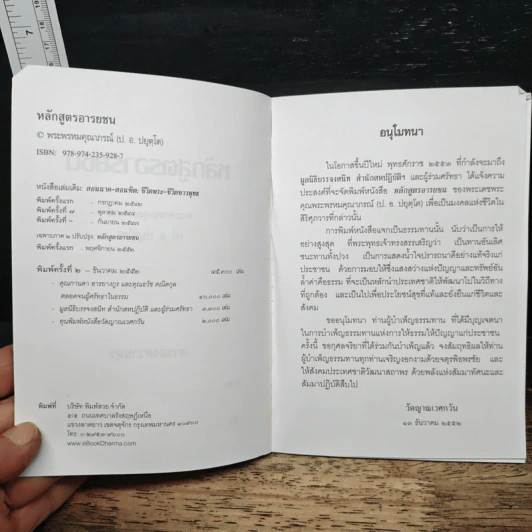 หลักสูตรอารยชน
© พระพรหมคุณาภรณ์ (ป. อ. ปยุตฺโต)
ISBN: 978-974-235-928-7
หนังสือเล่มเดิม: สอนนาค-สอนทิด: ชีวิตพระ-ชีวิตชาวพุทธ
พิมพ์ครั้งแรก - กรกฎาคม
พิมพ์ครั้งที่ ๗ - ตุลาคม
พิมพ์ครั้งที่ - กันยายน
เฉพาะภาค ๒ ปรับปรุง หลักสูตรอารยชน
พิมพ์ครั้งแรก - พฤศจิกายน ๒๕๕๒
พิมพ์ครั้งที่ ๒ - ธันวาคม ๒๕๕๒ เล่ม
- คุณกานดา อารยางกูร และคุณธวัช คณิตกุล
ตลอดจนผู้ศรัทธาในธรรม เล่ม
- มูลนิธิบรรจงสนิท สำนักสหปฏิบัติ และผู้ร่วมศรัทธา เล่ม
- ทุนพิมพ์หนังสือวัดญาณเวศกวัน ๒,๐๐๐ เล่ม
พิมพ์ที่ บริษัท พิมพ์สวย จำกัด
ถนนเทศบาลรังสฤษฎิ์เหนือ
แขวงลาดยาว เขตจตุจักร กรุงเทพมหานคร ๑๐๙๐๐
www.eBookDharma.com
อนุโมทนา
ในโอกาสขึ้นปีใหม่ พุทธศักราช ๒๕๕๓ ที่กำลังจะมาถึง
มูลนิธิบรรจงสนิท สำนักสหปฏิบัติฯ และผู้ร่วมศรัทธา ได้แจ้งความ
ประสงค์ที่จะจัดพิมพ์หนังสือ หลักสูตรอารยชน ของพระเดชพระ
คุณพระพรหมคุณาภรณ์ (ป. อ. ปยุตฺโต) เพื่อเป็นมงคลแห่งชีวิตใน
ศิริศุภวารที่กล่าวนั้น
การพิมพ์หนังสือแจกเป็นธรรมทานนั้น นับว่าเป็นการให้
อย่างสูงสุด ที่พระพุทธเจ้าทรงสรรเสริญว่า เป็นทานอันเลิศ
ชนะทานทั้งปวง เป็นการแสดงน้ำใจปรารถนาดีอย่างแท้จริงแก่
ประชาชน ด้วยการมอบให้ซึ่งแสงสว่างแห่งปัญญาและทรัพย์อัน
ล้ำค่าคือธรรม ที่จะเป็นหลักนำประเทศชาติให้พัฒนาไปในวิถีทาง
ที่ถูกต้อง และเป็นไปเพื่อประโยชน์สุขที่แท้และยั่งยืนแก่ชีวิตและ
สังคม
ขออนุโมทนา ท่านผู้บำเพ็ญธรรมทาน ที่ได้มีบุญเจตนา
ในการบำเพ็ญธรรมทานแห่งการให้ธรรมให้ปัญญาแก่ประชาชน
ครั้งนี้ ขอกุศลจริยาที่ได้ร่วมกันบำเพ็ญแล้ว จงสัมฤทธิผลให้ท่าน
ผู้บำเพ็ญธรรมทานทุกท่านเจริญงอกงามด้วยจตุรพิธพรชัย และ
ให้สังคมประเทศชาติวัฒนาสถาพร ด้วยพลังแห่งสัมมาทัศนะและ
สัมมาปฏิบัติสืบไป
วัดญาณเวศกวัน
๑๓ ธันวาคม ๒๕๕๒